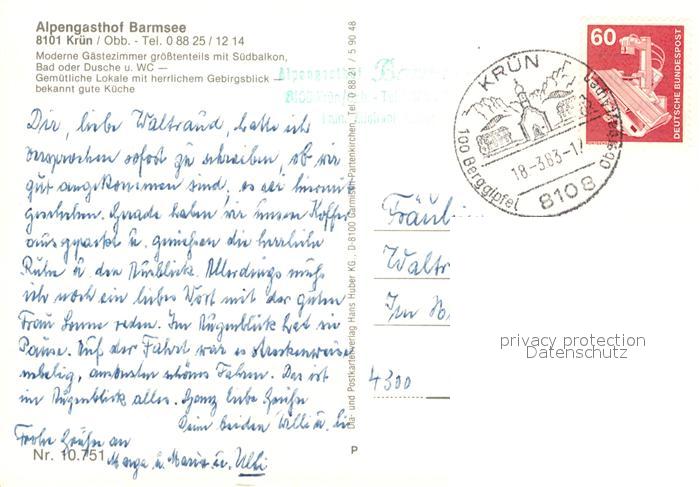 Alpengasthof Barmsee
8101 Krün / Obb. - Tel. 0 88 25 / 12 14
Moderne Gästezimmer größtenteils mit Südbalkon,
Bad oder Dusche u. WC –
Gemütliche Lokale mit herrlichem Gebirgsblick –
bekannt gute Küche
Dir, liebe Waltraud, hatte ich
versprochen sofort zu schreiben, ob wir
gut angekommen sind, es sei hiermit
geschehen. Gerade haben wir unsere Koffer
ausgepackt u. genießen die herrliche
Ruhe u. den Ausblick. Allerdings muß
ich noch ein liebes Wort mit der guten
Frau Sonne reden. Im Augenblick hat sie
Pause. Auf der Fahrt war es streckenweise
nebelig, ansonsten schönes Fahren. Das ist
im Augenblick alles. Ganz liebe Grüße
Deine beiden Willi u.
Frohe Grüße an
u. Maria u. Ulli
Nr. 10.751
Dia- und Postkartenverlag Hans Huber KG., D-8100 Garmisch-Partenkirchen, Tel. 0 88 21 / 5 90 48
P
Alpengasthof
KRÜN
100 Berggipfel
18.-3.83-17
8108
60
DEUTSCHE BUNDESPOST
Fräul
Waltr
Im
4300
privacy protection
Datenschutz